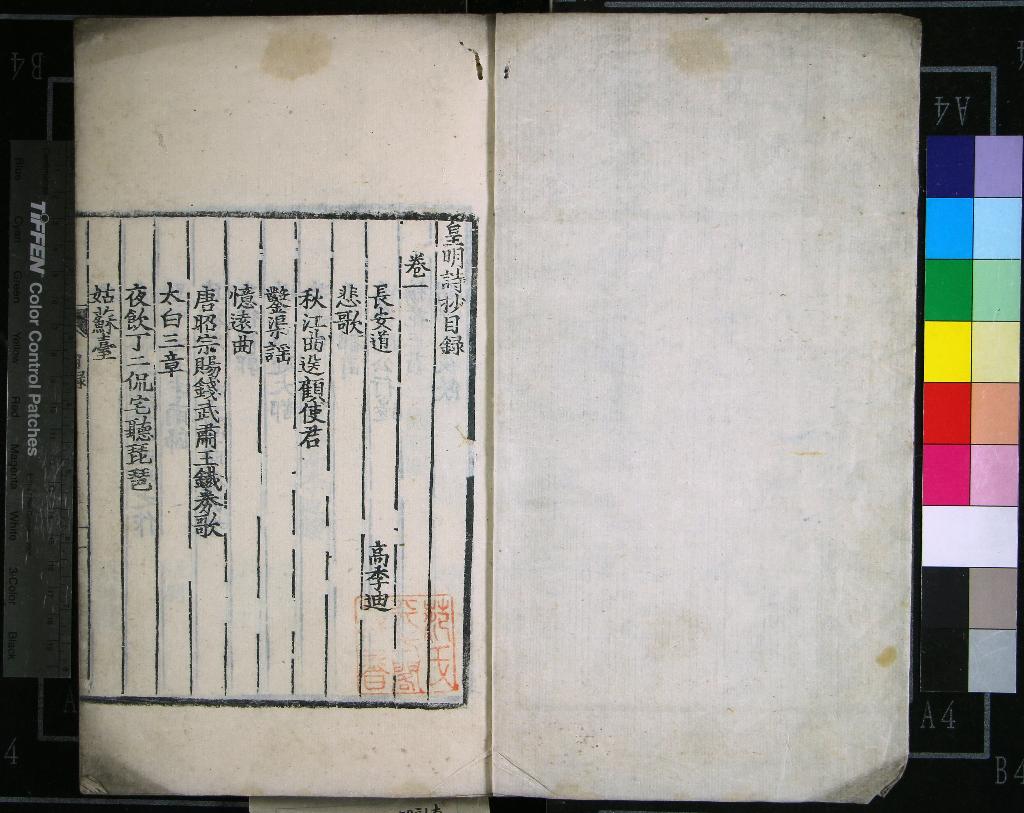 皇明詩抄目錄
卷一
長安道 高季迪
悲歌
秋江曲送顧使君
鑿渠謠
憶遠曲
唐昭宗賜錢武肅王鐵券歌
太白三章
夜飲丁二侃宅聽琵琶
姑蘇臺
TIFFEN Color Control Patches
Blue Cyan Green Yellow Red Magenta White 3-Color Black
B4
A4
A4
B4
4